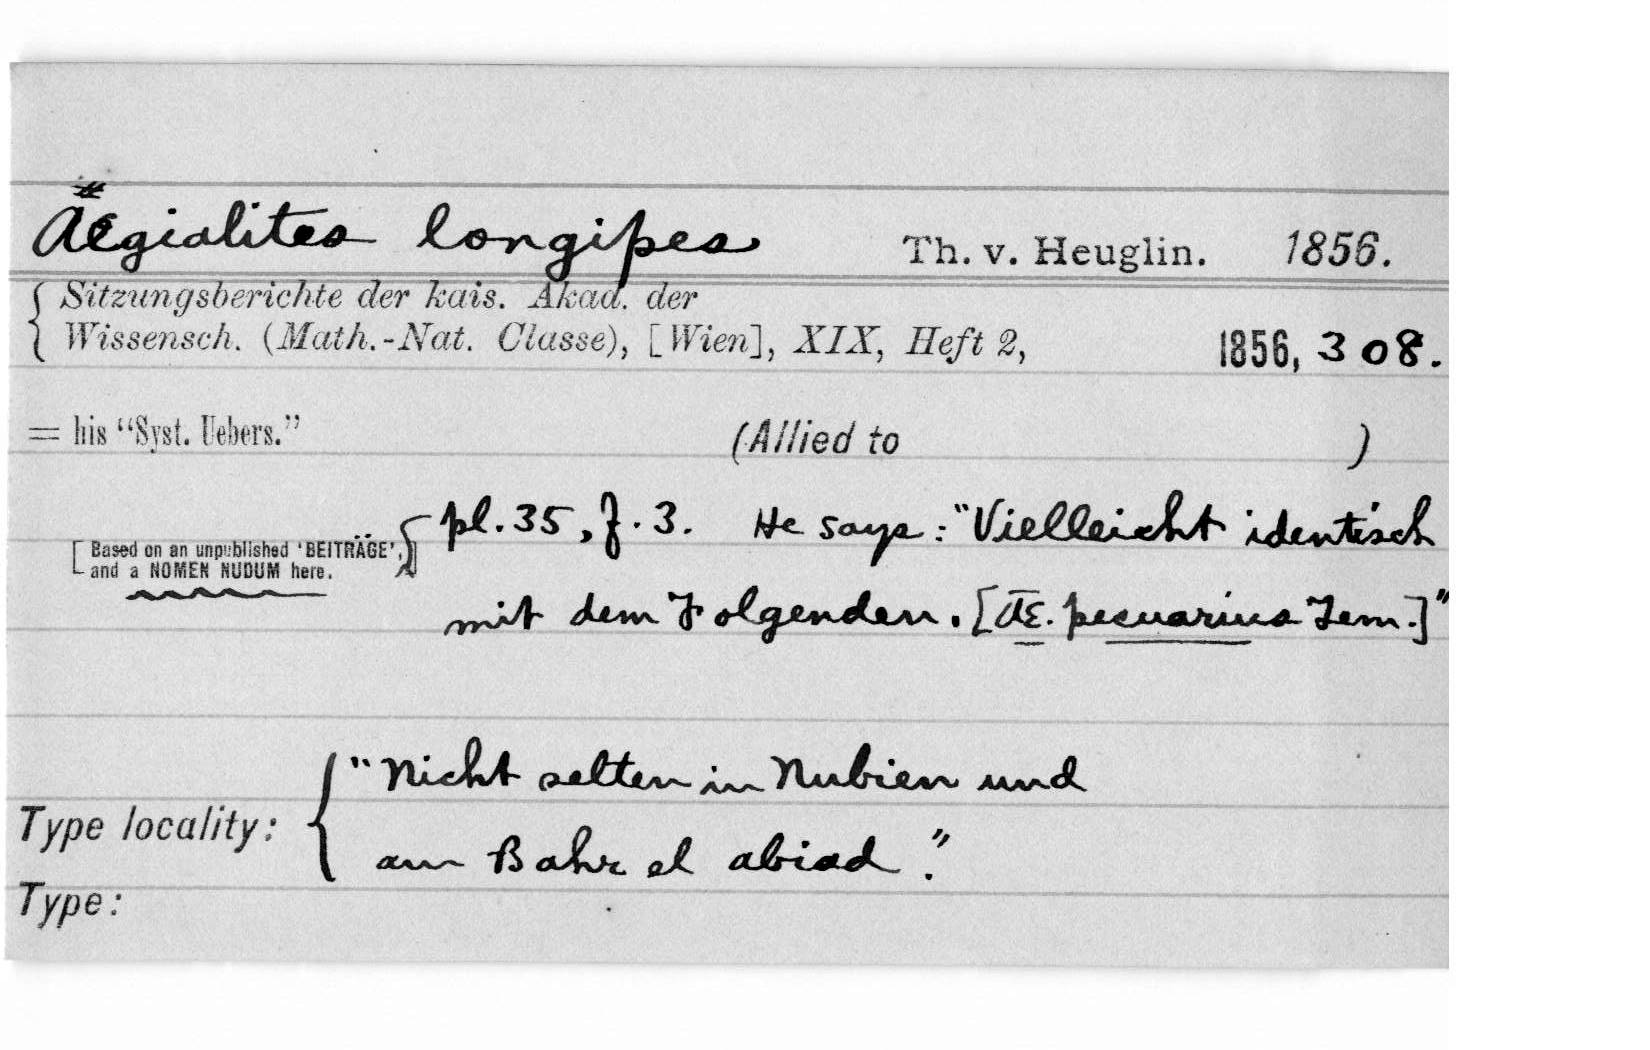 Aegialites longipes Th. v. Heuglin. 1856.
Sitzungsberichte der kais. Akad. der
Wissensch. (Math.-Nat. Classe), [Wien], XIX, Heft 2, 1856, 308.
= his “Syst. Uebers.” (Allied to )
pl. 35, f. 3. He says: "Vielleicht identisch
[Based on an unpublished ‘BEITRÄGE’,
and a NOMEN NUDUM here.]
mit dem Folgenden. [Æ. pecuarius Tem.]"
"Nicht selten in Nubien und
Type locality:
am Bahr el abiad."
Type: